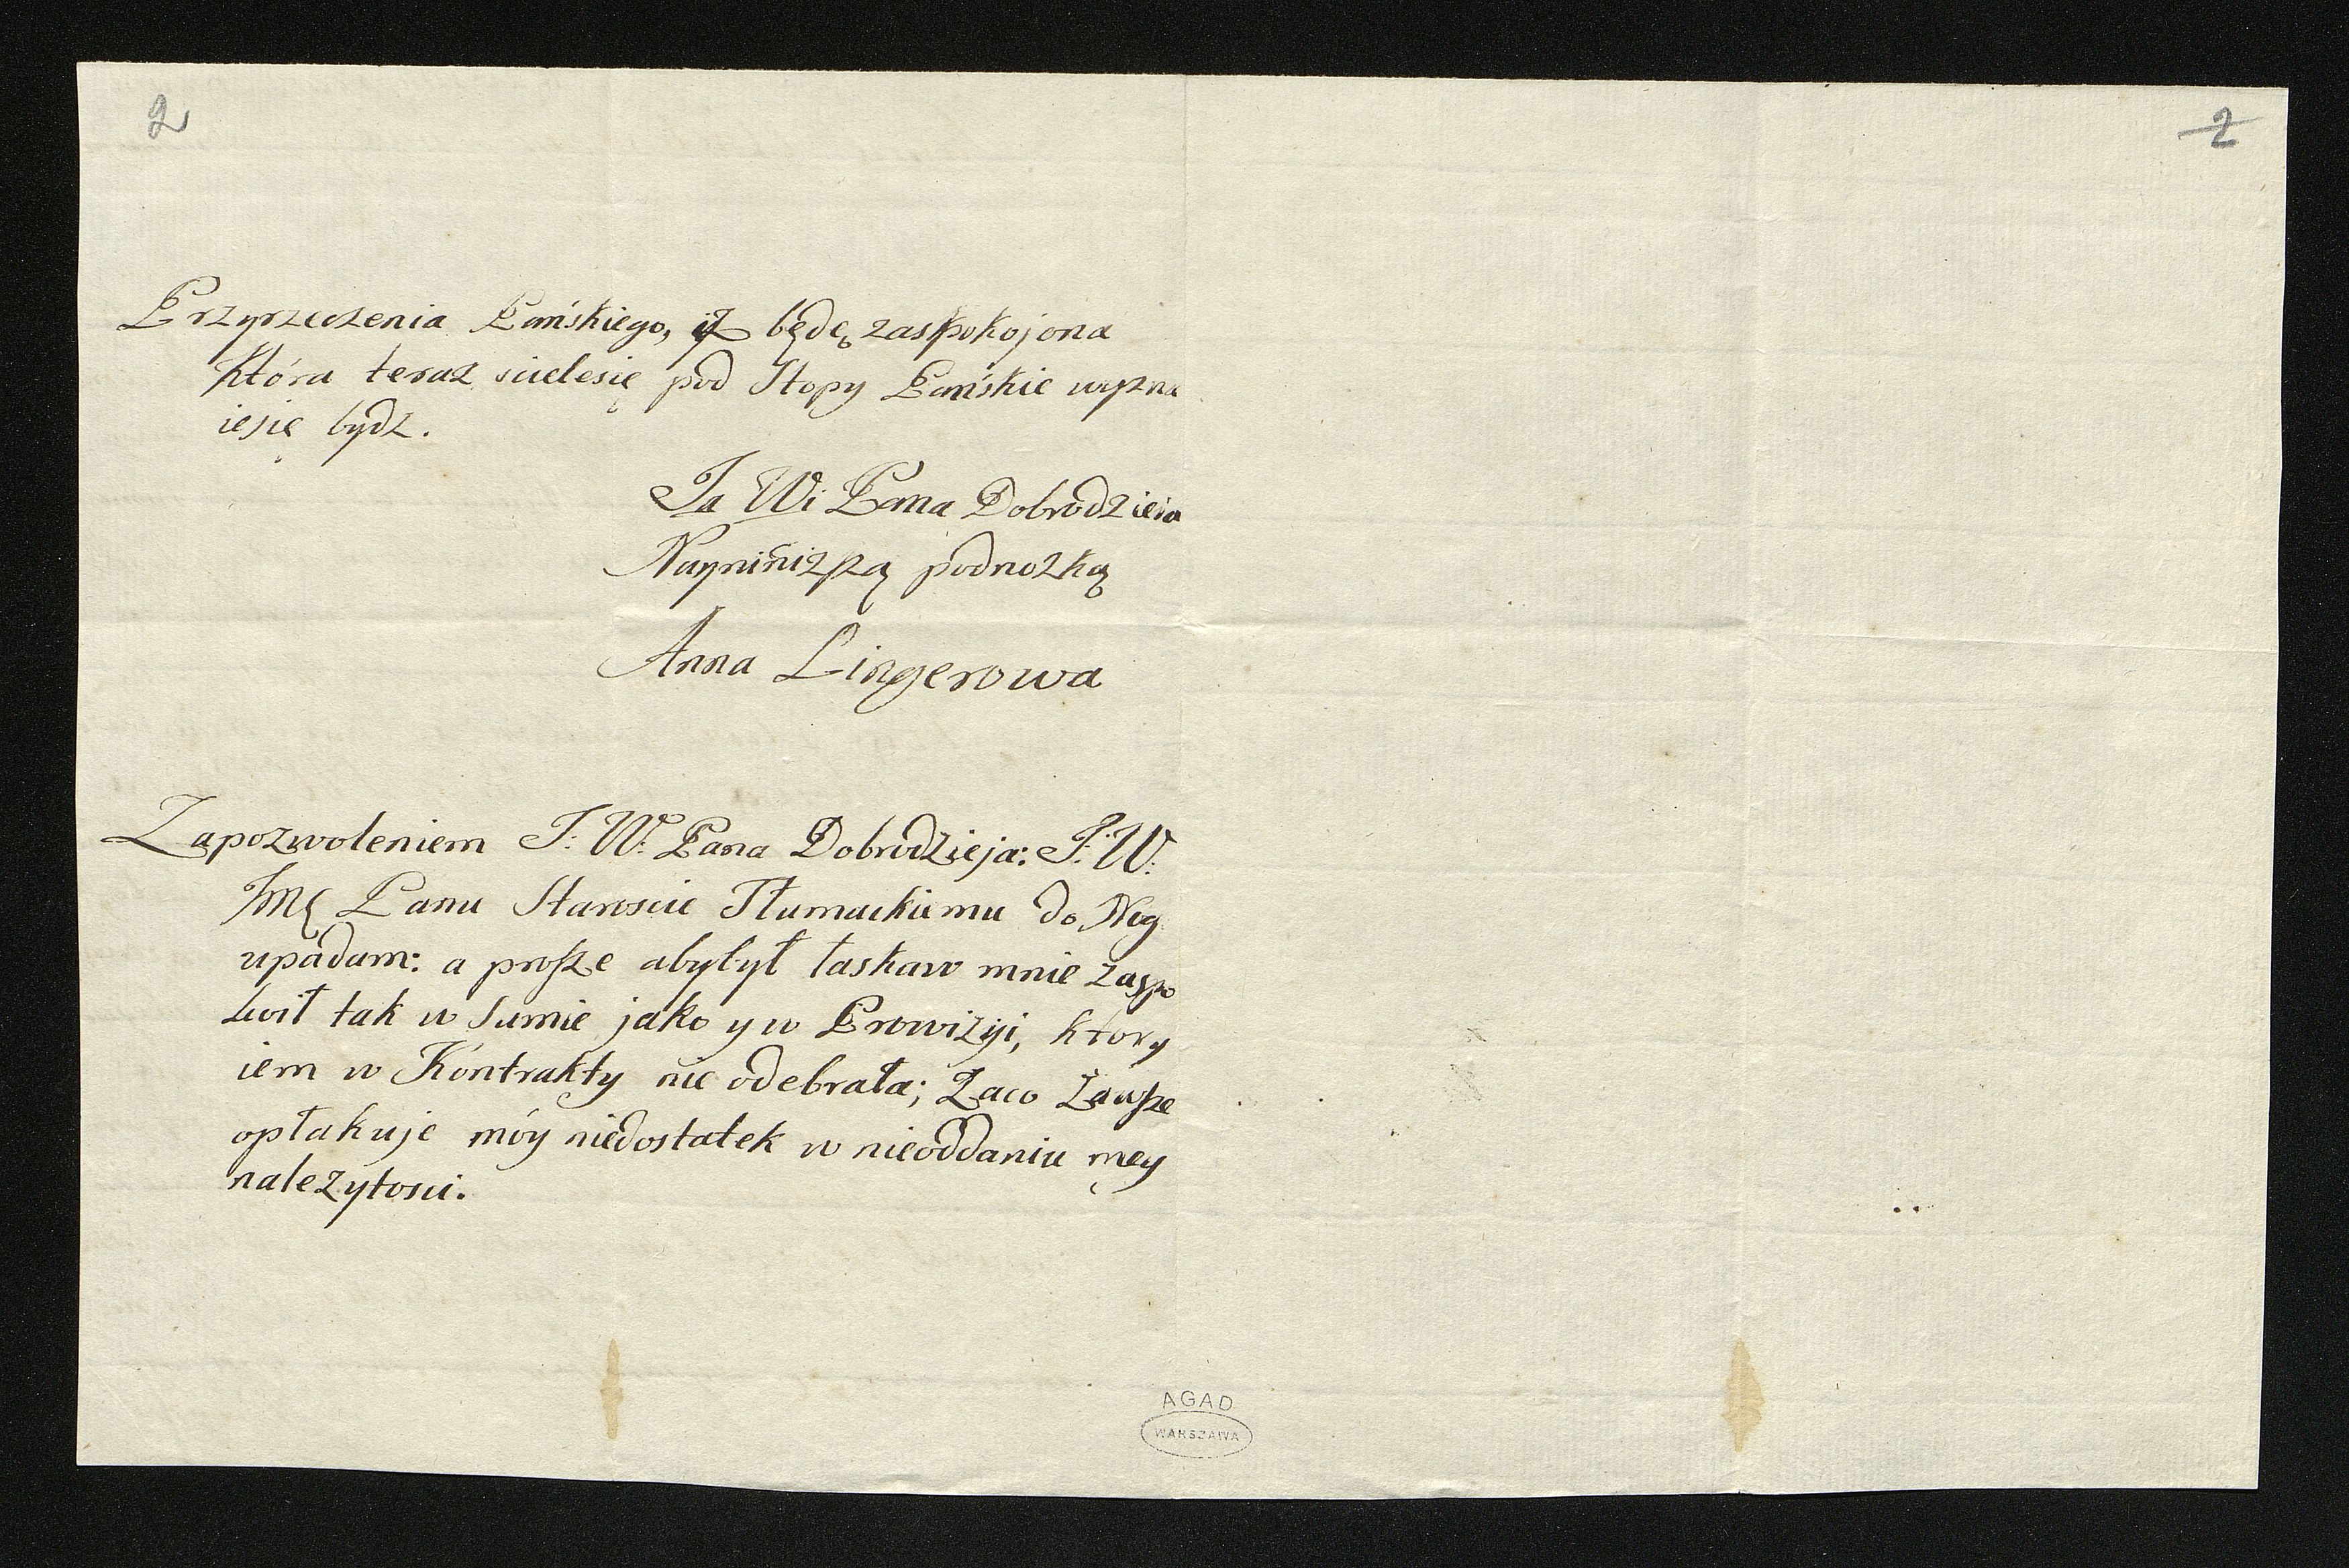 2
2
Przyrzeczenia Pańskiego, iż będę zaspokojona
która teraz scielesię pod Stopy Pańskie wyzna
iesię bydz.
Ja Wi Pana Dobrodzieia
Nayniñiszszą podnozką
Anna Lingerowa
Zapozwoleniem J: W: Pana Dobrodzieja: J: W:
Jmę Panu Staroscie Tłumackiemu do Nog
upadam: a proszę abybył łaskaw mnie zaspo
koił tak w Sumie jako y w Prowizyi, ktory
iem w Kóntrakty nie odebrała; Zaco Zawsze
opłakuje móy niedostatek w nieoddaniu mey
nalezytosci.
AGAD
WARSZAWA